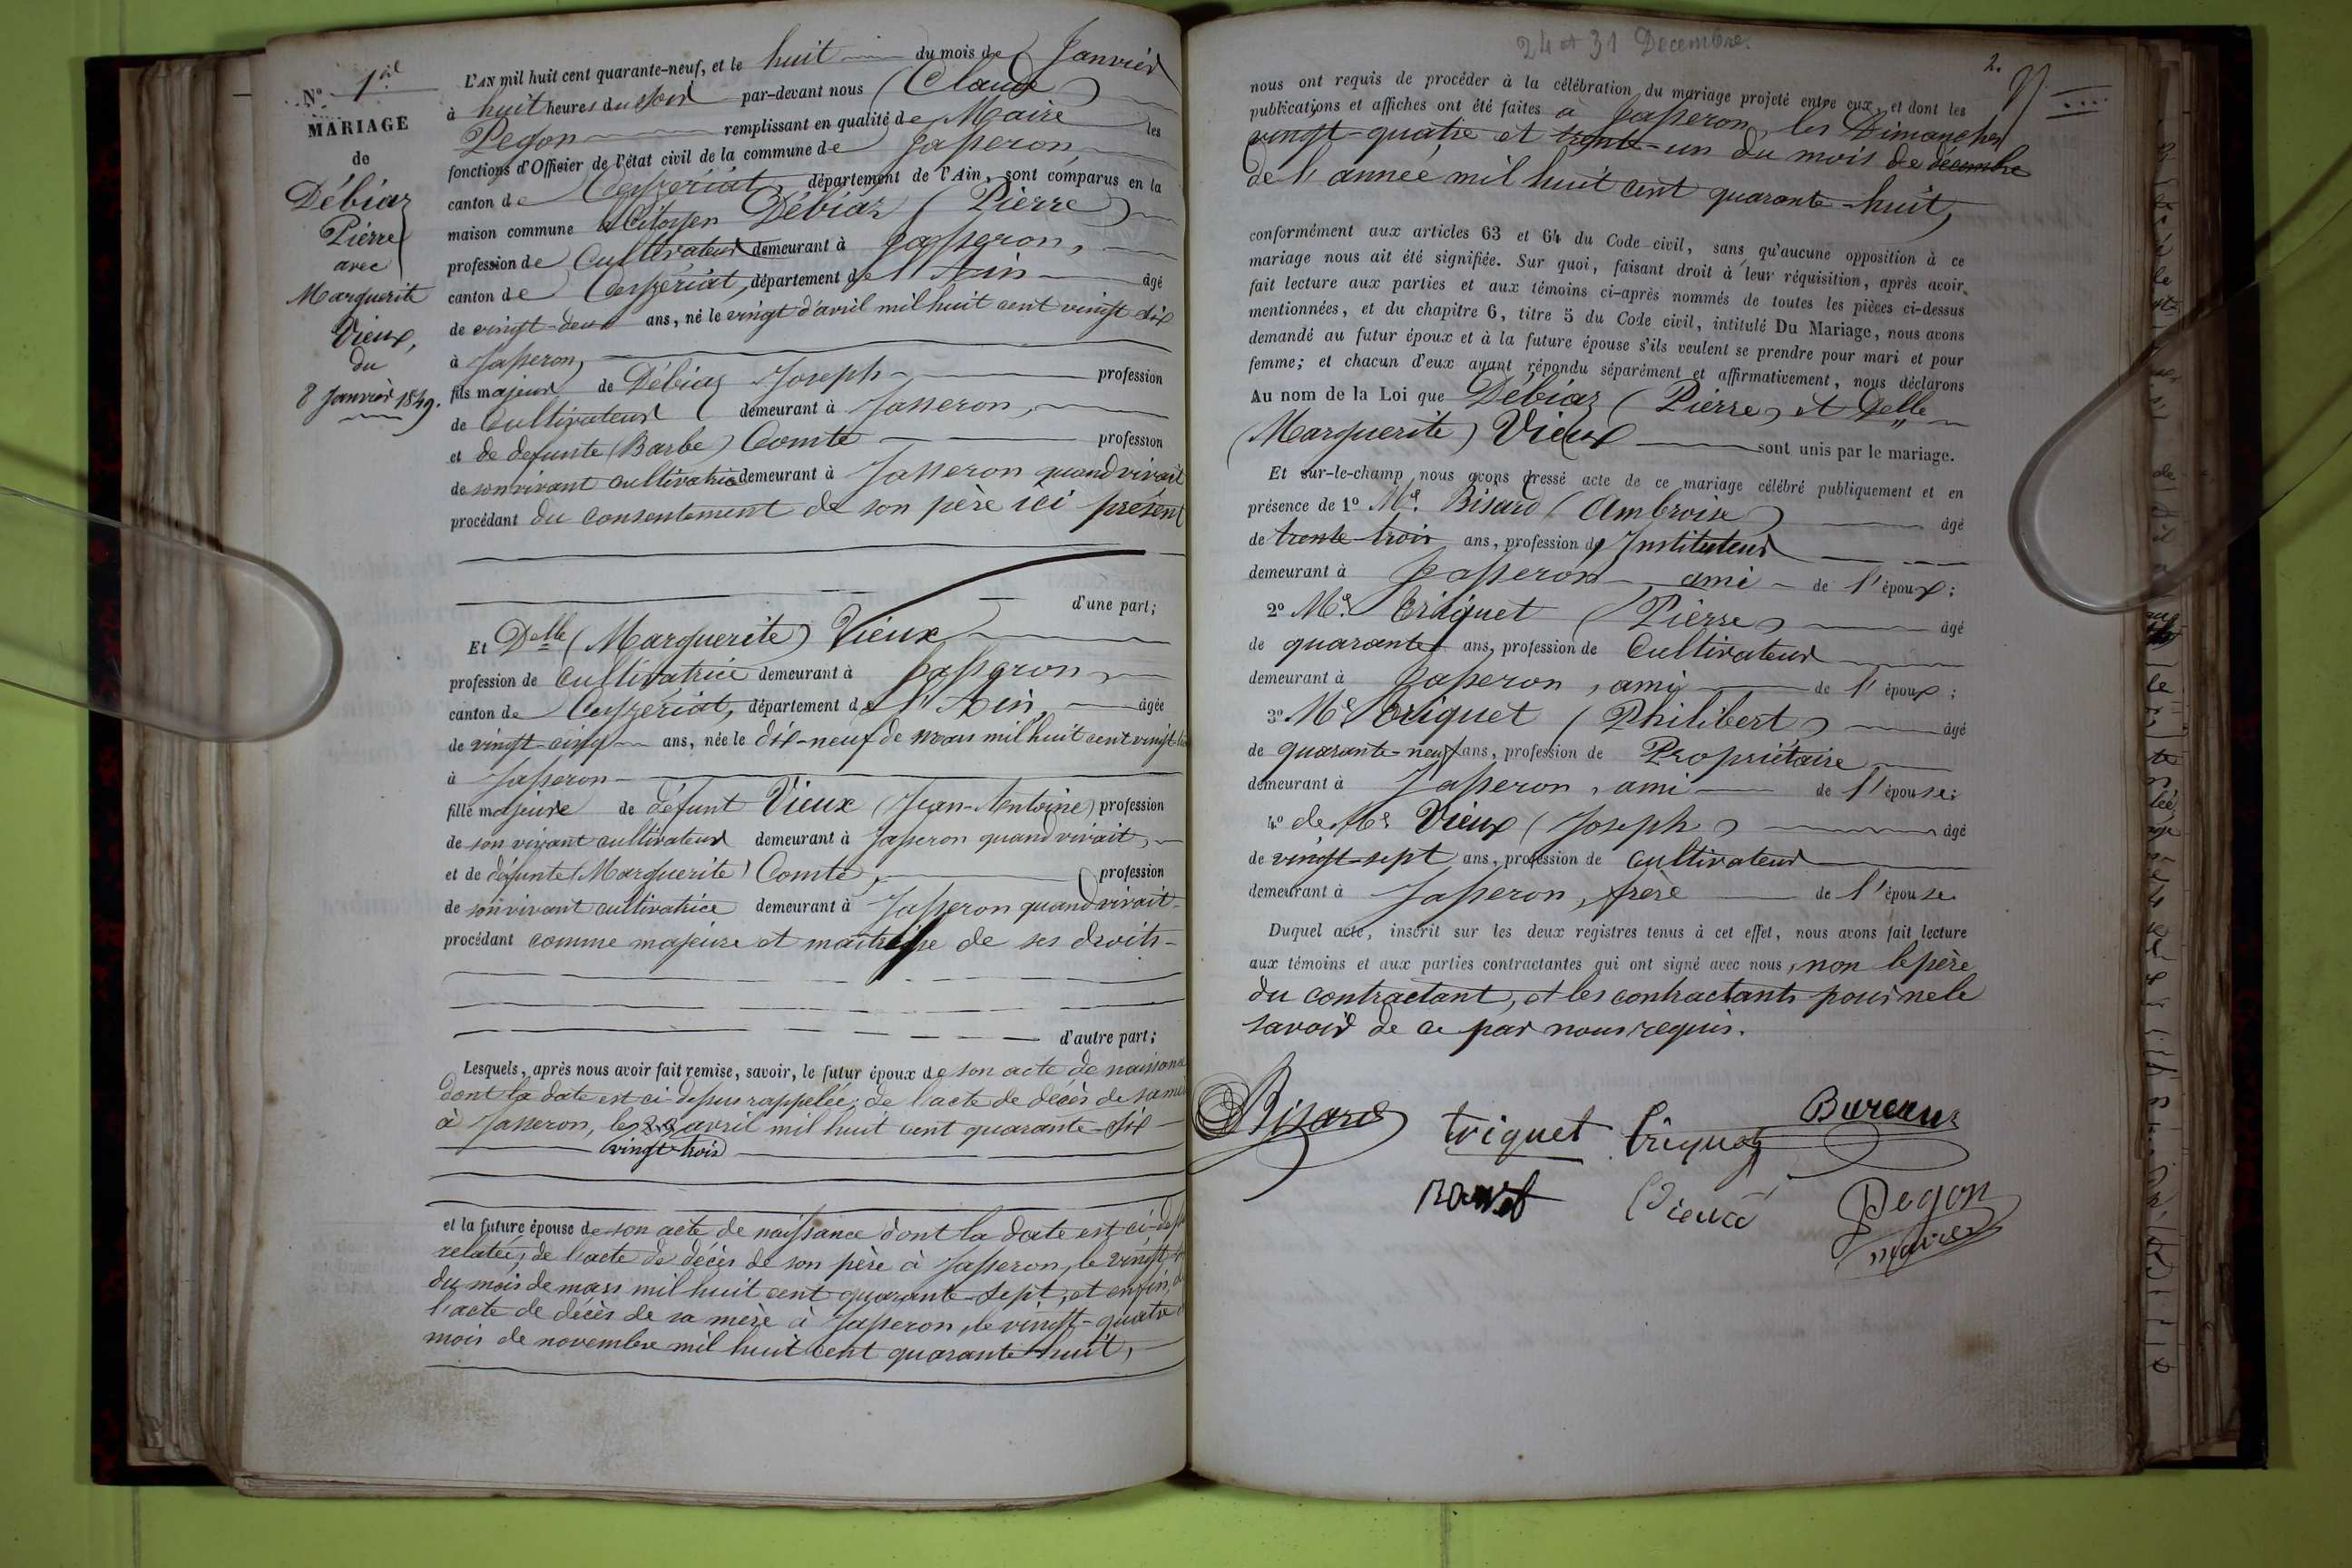 N° 1er
MARIAGE
de
Débiaz
Pierre
avec
Marguerite
Vieux,
du
8 Janvier 1849.
L'AN mil huit cent quarante-neuf, et le huit du mois de Janvier
à huit heures du soir par-devant nous (Claude)
Pegon remplissant en qualité de Maire les
fonctions d'Officier de l'état civil de la commune de Jasseron
canton de Ceyzériat, département de l'Ain, sont comparus en la
maison commune le Citoyen Débiaz (Pierre)
profession de Cultivateur demeurant à Jasseron,
canton de Ceyzériat, département de l'Ain âgé
de vingt-deux ans, né le vingt d'avril mil huit cent vingt six
à Jasseron,
fils majeur de Débiaz Joseph profession
de Cultivateur demeurant à Jasseron,
et de defunte (Barbe) Comte profession
de son vivant cultivatrice demeurant à Jasseron quand vivait
procédant du consentement de son père ici présent
d'une part;
Et Delle (Marguerite) Vieux
profession de Cultivatrice demeurant à Jasseron,
canton de Ceyzériat, département de l'Ain, âgée
de vingt-cinq ans, née le dix-neuf de mars mil huit cent vingt
à Jasseron
fille majeure de défunt Vieux (Jean-Antoine) profession
de son vivant cultivateur demeurant à Jasseron quand vivait,
et de défunte (Marguerite) Comte, profession
de son vivant cultivatrice demeurant à Jasseron quand vivait
procédant comme majeure et maitresse de ses droits
d'autre part;
Lesquels, après nous avoir fait remise, savoir, le futur époux de son acte de naissance
dont la date est ci-dessus rappelée; de l'acte de décès de sa
à Jasseron, le avril mil huit cent quarante-six
(vingt-trois)
et la future épouse de son acte de naissance dont la date est ci-
relatée, de l'acte de décès de son père à Jasseron, le vingt
du mois de mars mil huit cent quarante-sept, et enfin, de
l'acte de décès de sa mère à Jasseron, le vingt-quatre
mois de novembre mil huit cent quarante-huit,
24 et 31 Decembre.
2.
nous ont requis de procéder à la célébration du mariage projeté entre eux, et dont les
publications et affiches ont été faites à Jasseron, les Dimanches
vingt-quatre et trente-un du mois de décembre
de l'année mil huit cent quarante-huit,
conformément aux articles 63 et 64 du Code civil, sans qu'aucune opposition à ce
mariage nous ait été signifiée. Sur quoi, faisant droit à leur réquisition, après avoir
fait lecture aux parties et aux témoins ci-après nommés de toutes les pièces ci-dessus
mentionnées, et du chapitre 6, titre 5 du Code civil, intitulé Du Mariage, nous avons
demandé au futur époux et à la future épouse s'ils veulent se prendre pour mari et pour
femme; et chacun d'eux ayant répondu séparément et affirmativement, nous déclarons
Au nom de la Loi que Débiaz (Pierre) et Delle
(Marguerite) Vieux sont unis par le mariage.
Et sur-le-champ nous avons dressé acte de ce mariage célébré publiquement et en
présence de 1° Mr. Bisard (Ambroise) âgé
de trente-trois ans, profession de Instituteur
demeurant à Jasseron, ami de l'époux;
2° Mr. Triquet (Pierre) âgé
de quarante ans, profession de Cultivateur
demeurant à Jasseron, ami de l'époux;
3° Mr Triquet (Philibert) âgé
de quarante-neuf ans, profession de Propriétaire
demeurant à Jasseron, ami de l'épouse;
4° de Mr Vieux (Joseph) âgé
de vingt-sept ans, profession de cultivateur
demeurant à Jasseron, frère de l'épouse
Duquel acte, inscrit sur les deux registres tenus à cet effet, nous avons fait lecture
aux témoins et aux parties contractantes qui ont signé avec nous, non le père
du contractant, et les contractants pour ne le
savoir de ce par nous requis.
Bisard triquet triquet Bureaux
Vieux Pegon
maire